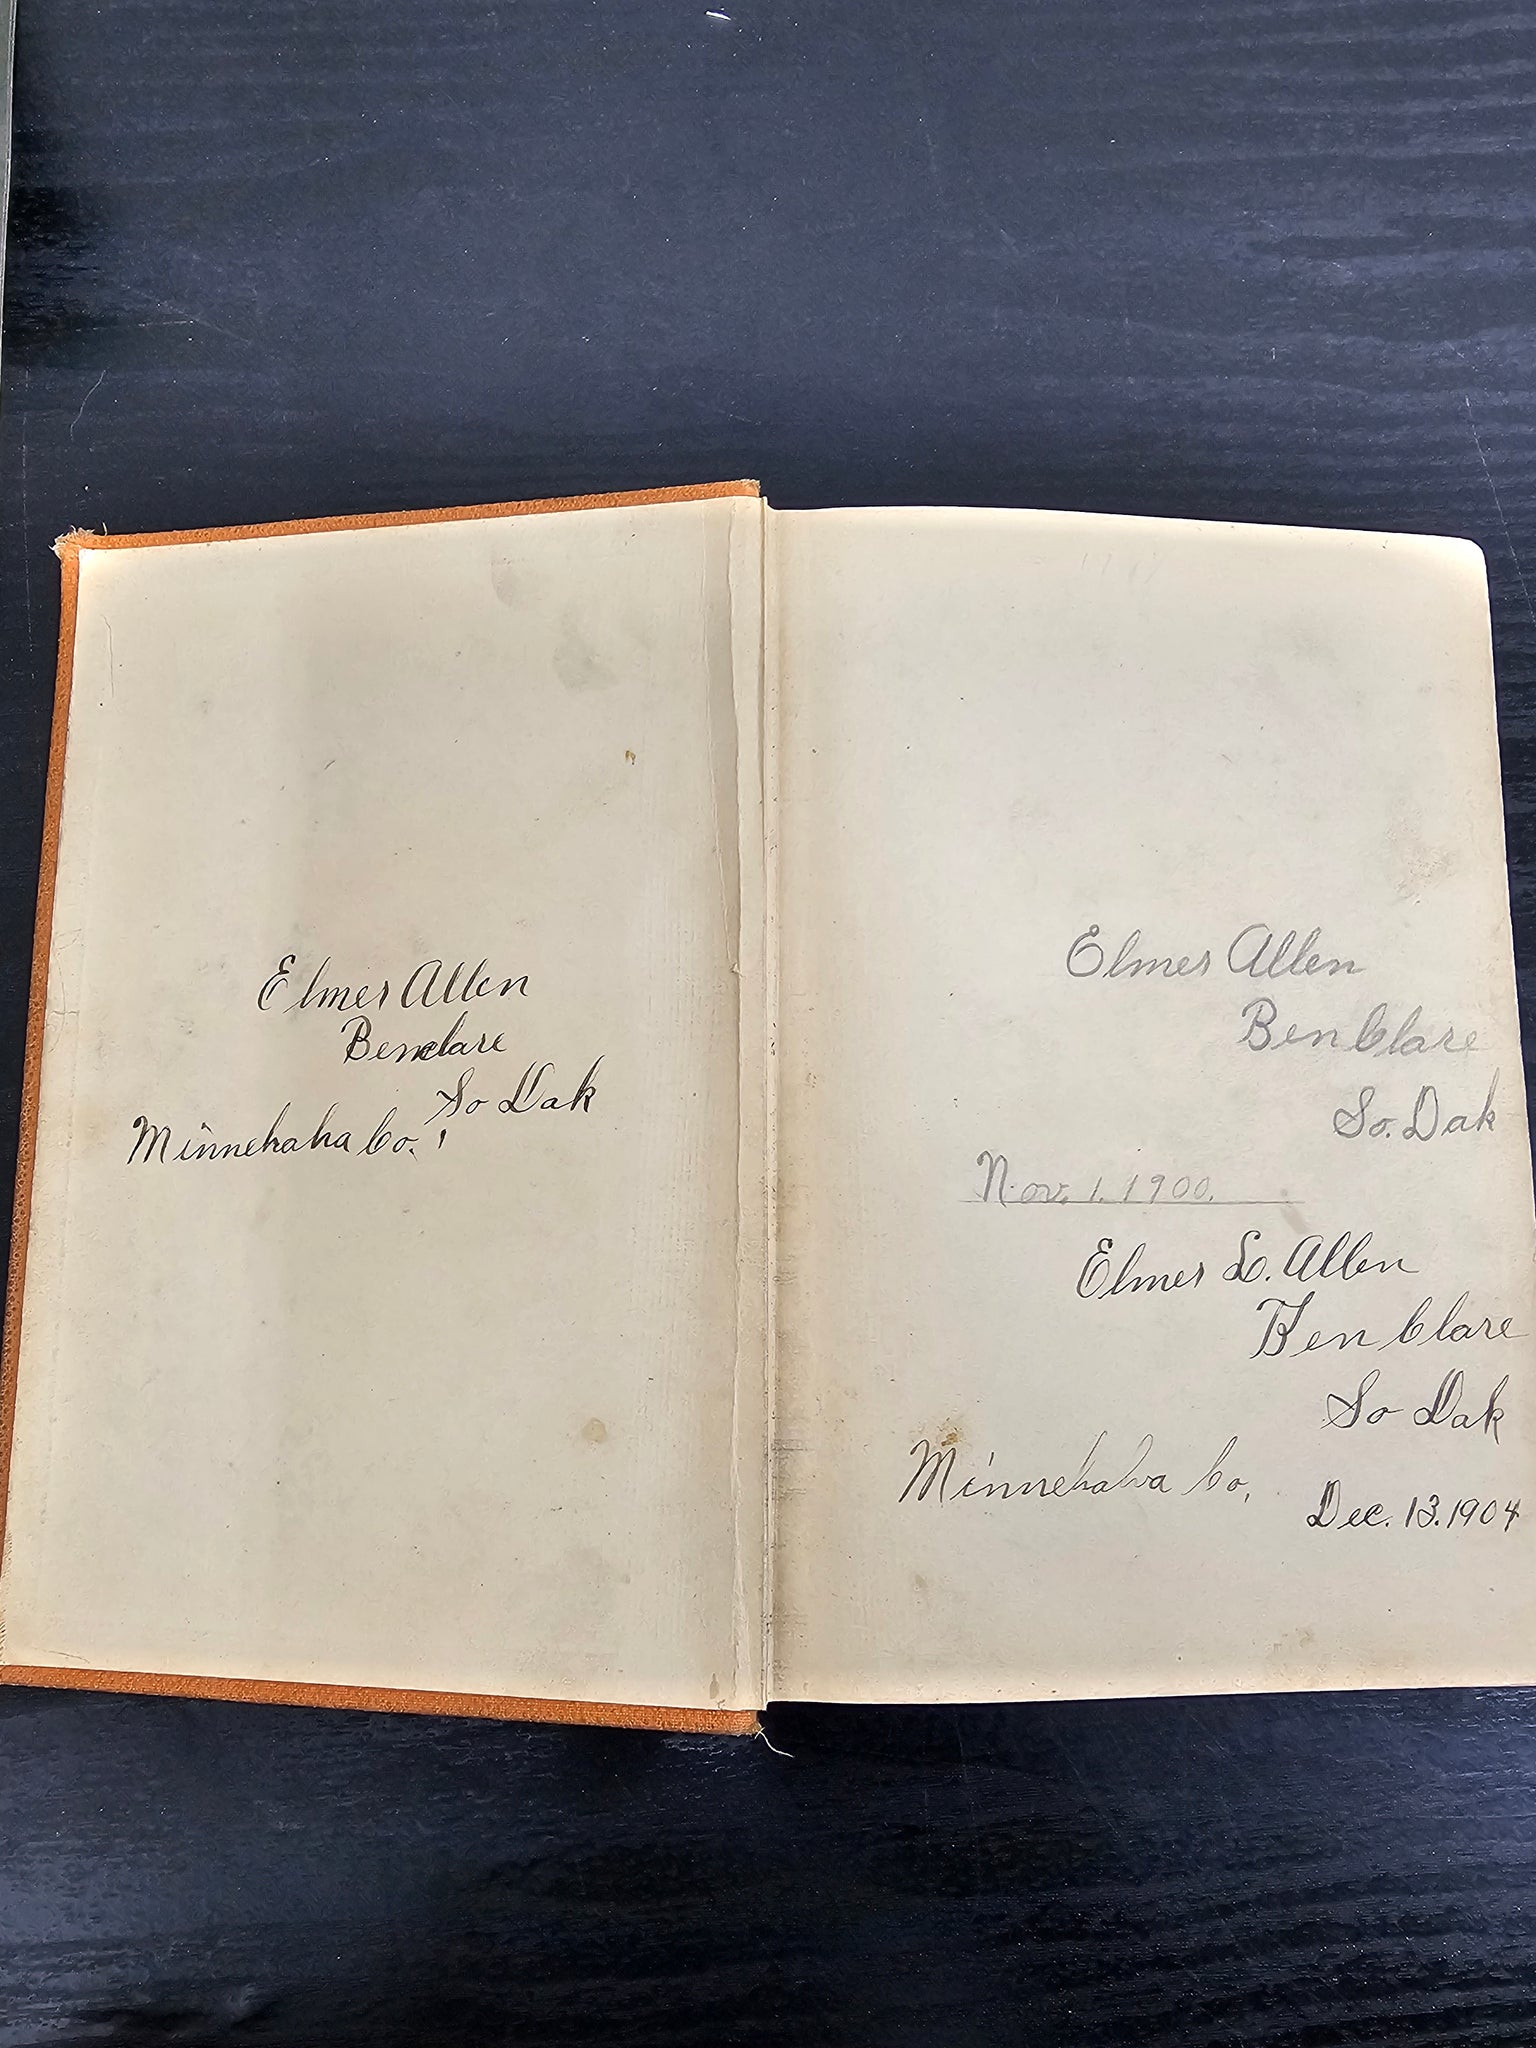 Elmer Allen
Benclare
So Dak
Minnehaha Co.
Elmer Allen
Ben Clare
So. Dak
Nov. 1. 1900.
Elmer L. Allen
Ben Clare
So Dak
Minnehaha Co,
Dec. 13. 1904